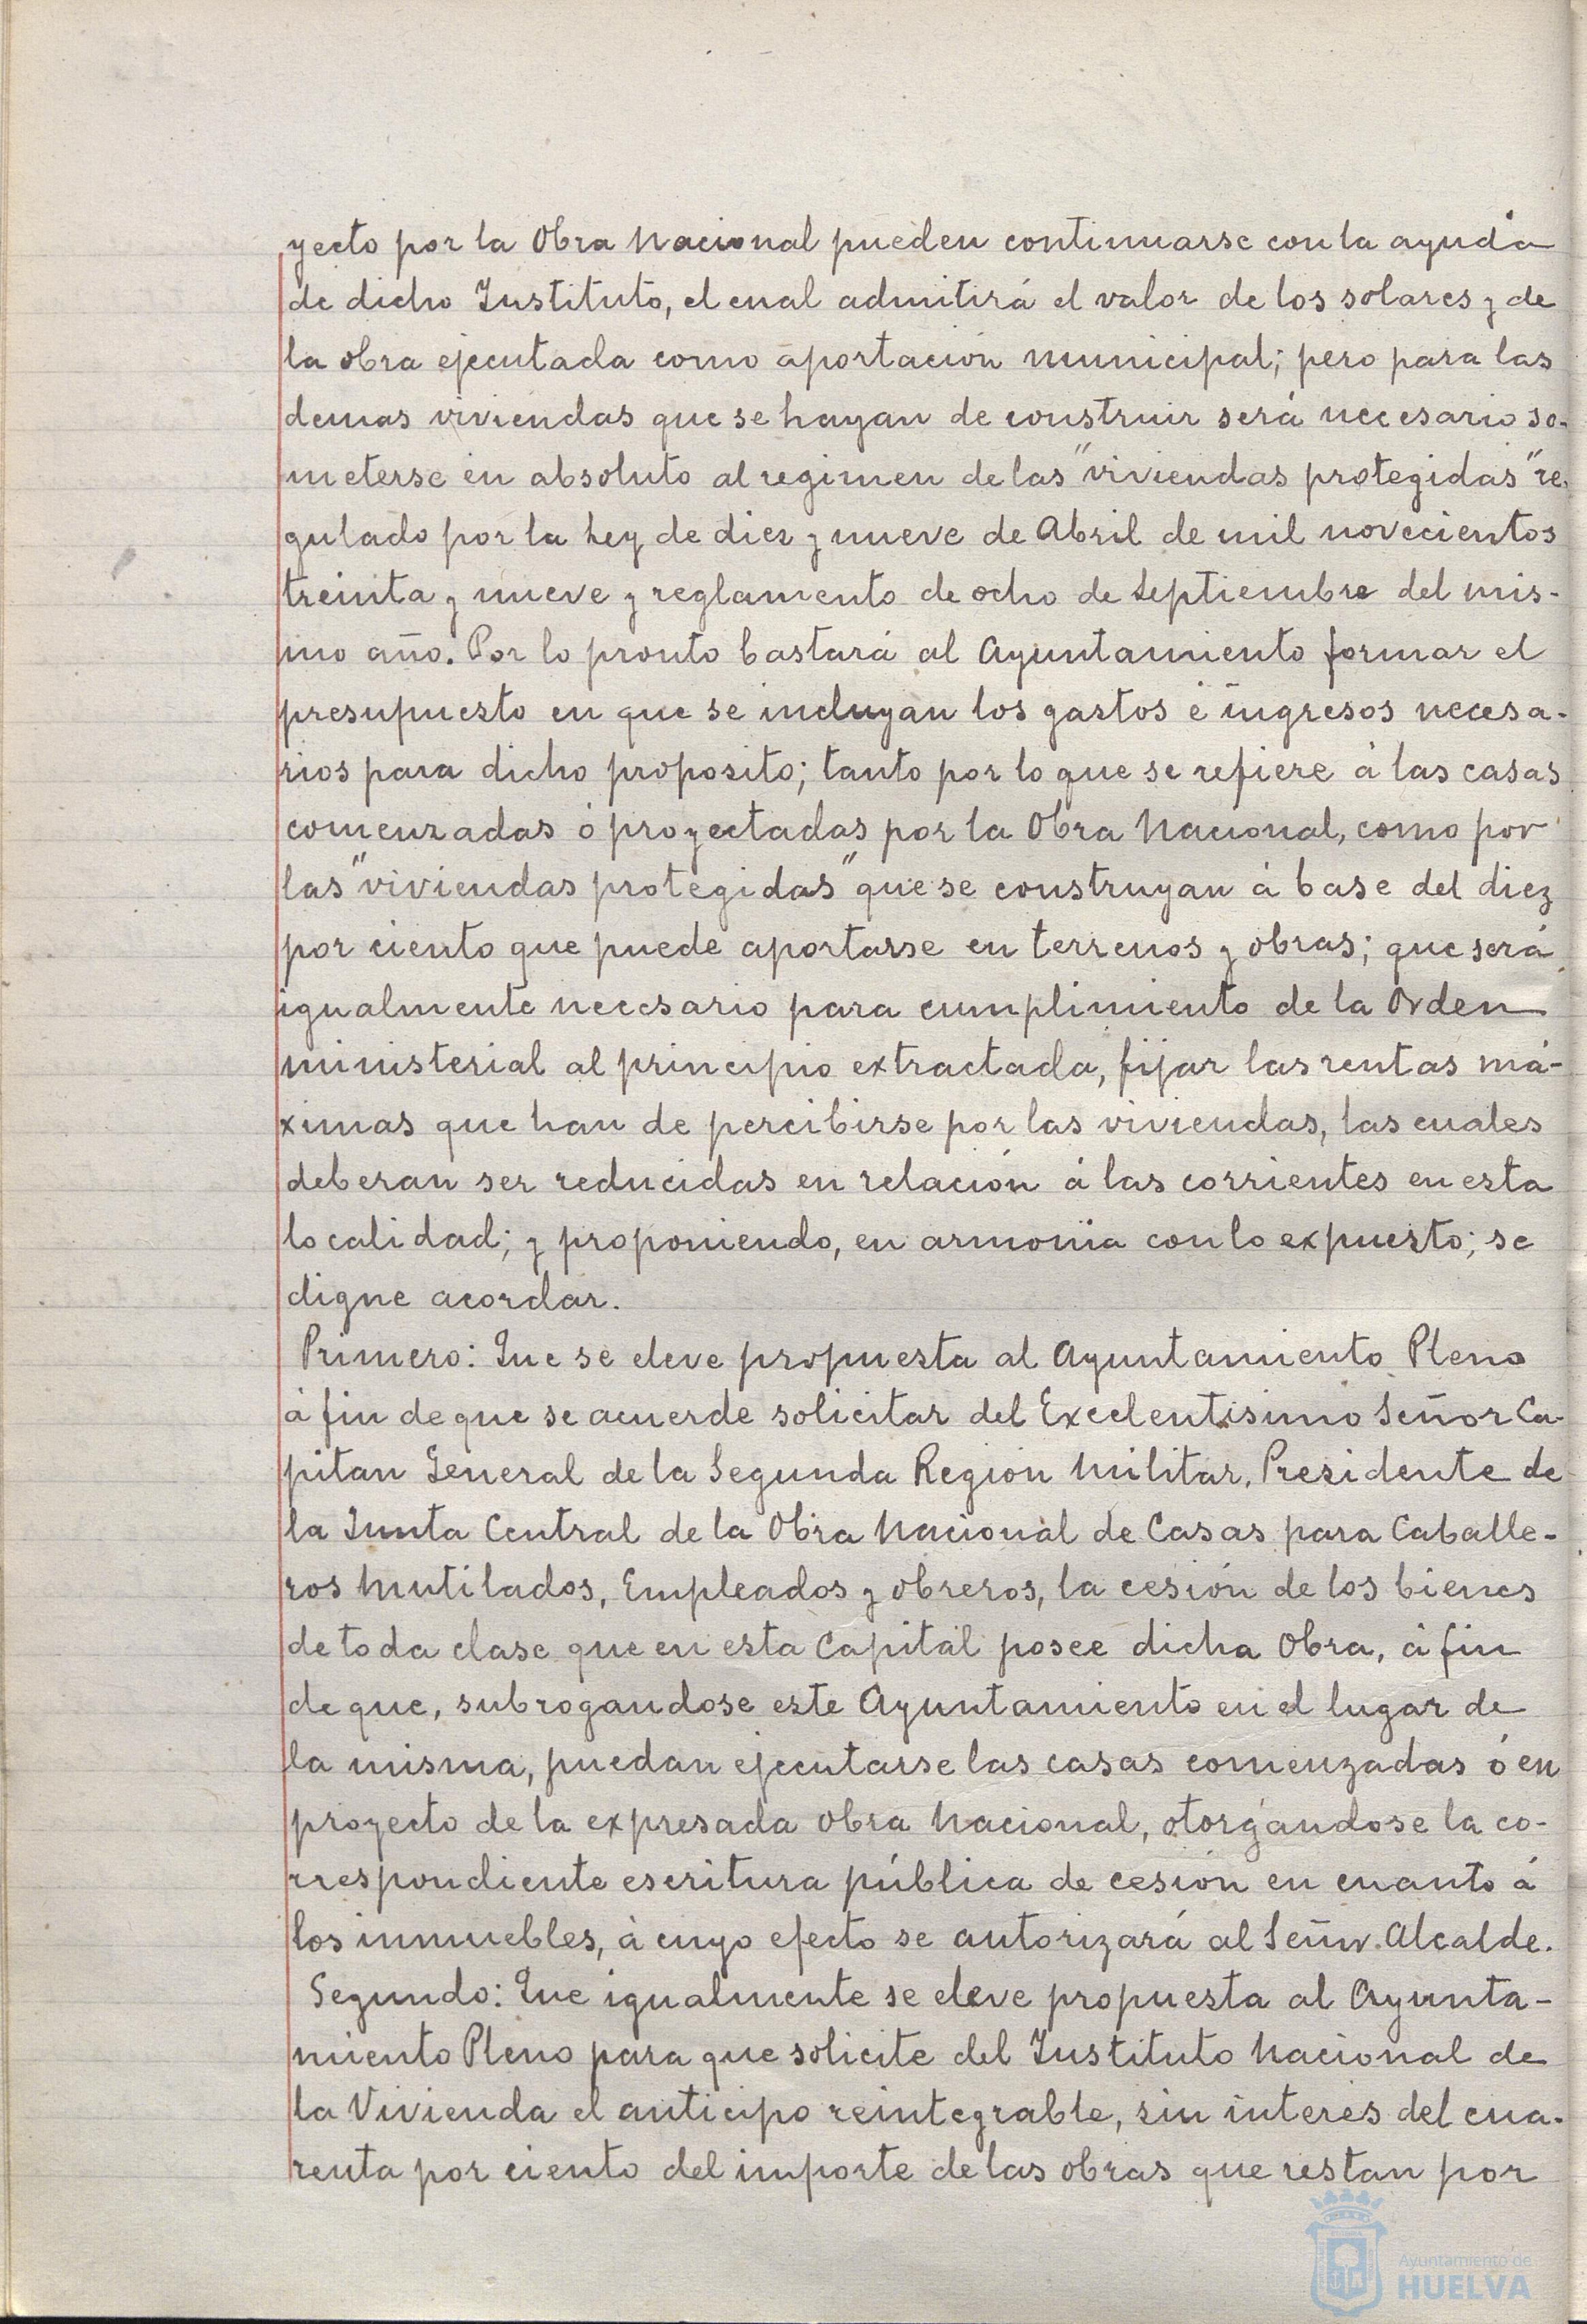 yecto por la Obra Nacional pueden continuarse con la ayuda
de dicho Instituto, el cual admitirá el valor de los solares y de
la obra ejecutada como aportación municipal; pero para las
demas viviendas que se hayan de construir será necesario so-
meterse en absoluto al regimen de las "viviendas protegidas" re-
gulado por la Ley de diez y nueve de Abril de mil novecientos
treinta y nueve y reglamento de ocho de Septiembre del mis-
mo año. Por lo pronto bastará al Ayuntamiento formar el
presupuesto en que se incluyan los gastos é ingresos necesa-
rios para dicho proposito; tanto por lo que se refiere á las casas
comenzadas ó proyectadas por la Obra Nacional, como por
las "viviendas protegidas" que se construyan á base del diez
por ciento que puede aportarse en terrenos y obras; que será
igualmente necesario para cumplimiento de la Orden
ministerial al principio extractada, fijar las rentas má-
ximas que han de percibirse por las viviendas, las cuales
deberan ser reducidas en relación á las corrientes en esta
localidad; y proponiendo, en armonía con lo expuesto; se
digne acordar.
Primero: Que se eleve propuesta al Ayuntamiento Pleno
á fin de que se acuerde solicitar del Excelentisimo Señor Ca-
pitan General de la Segunda Region Militar, Presidente de
la Junta Central de la Obra Nacional de Casas para Caballe-
ros Mutilados, Empleados y obreros, la cesión de los bienes
de toda clase que en esta Capital posee dicha Obra, á fin
de que, subrogandose este Ayuntamiento en el lugar de
la misma, puedan ejecutarse las casas comenzadas ó en
proyecto de la expresada Obra Nacional, otorgándose la co-
rrespondiente escritura pública de cesión en cuanto á
los inmuebles, á cuyo efecto se autorizará al Señor Alcalde.
Segundo: Que igualmente se eleve propuesta al Ayunta-
miento Pleno para que solicite del Instituto Nacional de
la Vivienda el anticipo reintegrable, sin interés del cua-
renta por ciento del importe de las obras que restan por
Ayuntamiento de
HUELVA